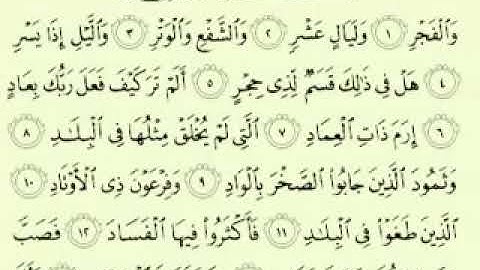 وَٱلۡفَجۡرِ ١ وَلَيَالٍ عَشۡرٖ ٢ وَٱلشَّفۡعِ وَٱلۡوَتۡرِ ٣ وَٱلَّيۡلِ إِذَا يَسۡرِ
٤ هَلۡ فِي ذَٰلِكَ قَسَمٞ لِّذِي حِجۡرٍ ٥ أَلَمۡ تَرَ كَيۡفَ فَعَلَ رَبُّكَ بِعَادٍ
٦ إِرَمَ ذَاتِ ٱلۡعِمَادِ ٧ ٱلَّتِي لَمۡ يُخۡلَقۡ مِثۡلُهَا فِي ٱلۡبِلَٰدِ ٨
وَثَمُودَ ٱلَّذِينَ جَابُواْ ٱلصَّخۡرَ بِٱلۡوَادِ ٩ وَفِرۡعَوۡنَ ذِي ٱلۡأَوۡتَادِ ١٠
ٱلَّذِينَ طَغَوۡاْ فِي ٱلۡبِلَٰدِ ١١ فَأَكۡثَرُواْ فِيهَا ٱلۡفَسَادَ ١٢ فَصَبَّ